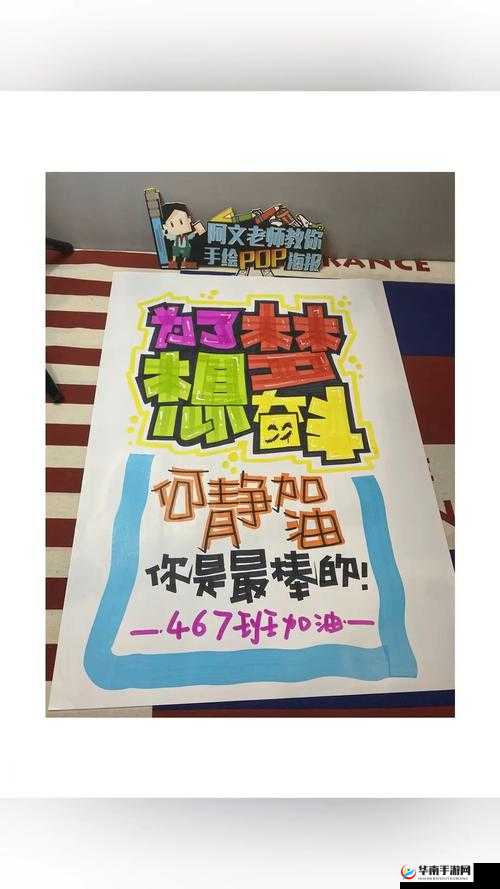 阿文老师教你
手绘POP海报
RANCE
为了梦
想奋斗
何静加油
你是最棒的!
—467班加油—
华南手游网